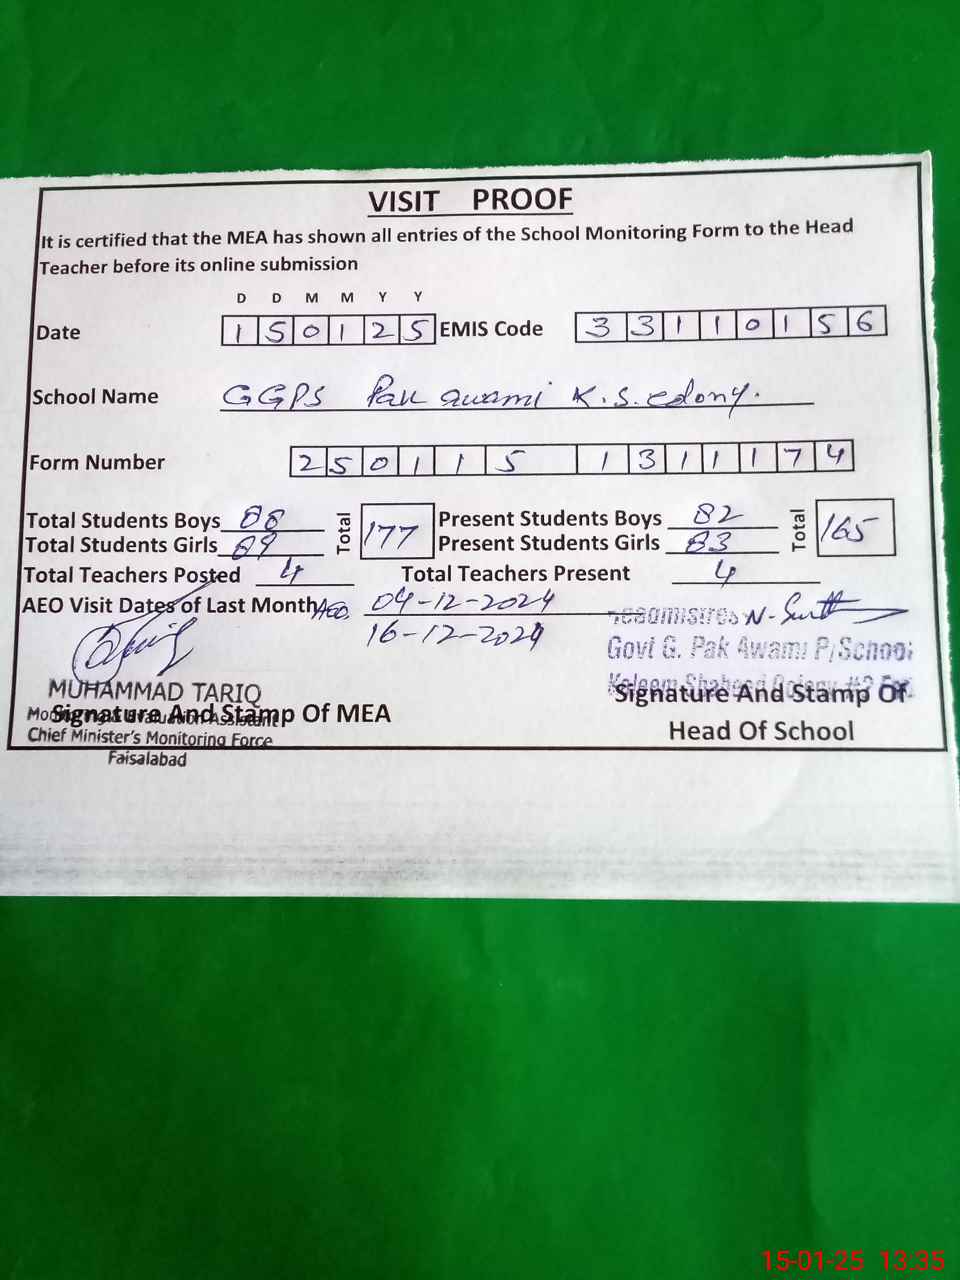 VISIT PROOF
It is certified that the MEA has shown all entries of the School Monitoring Form to the Head
Teacher before its online submission
D D M M Y Y
Date 1 5 0 1 2 5 EMIS Code 3 3 1 1 0 1 5 6
School Name GGPS Pak awami K.S. colony.
Form Number 2 5 0 1 1 5 1 3 1 1 1 7 4
Total Students Boys 88 Total 177 Present Students Boys 82 Total 165
Total Students Girls 89 Present Students Girls 83
Total Teachers Posted 4 Total Teachers Present 4
AEO Visit Dates of Last Month AEO. 04-12-2024
16-12-2024
Headmistres
Govt G. Pak Awami P/School
Kaleem Shaheed Colony #2
MUHAMMAD TARIQ
Signature And Stamp Of MEA
Monitoring & Evaluation Assistant
Chief Minister's Monitoring Force
Faisalabad
Signature And Stamp Of
Head Of School
15-01-25 13:35